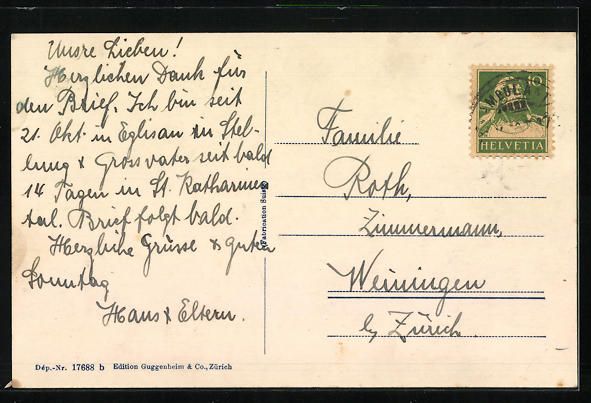 Unsre Lieben!
Herzlichen Dank für
den Brief. Ich bin seit
21. Okt. in Eglisau in Stel-
lung & Grossvater seit bald
14 Tagen in St. Katharinen
tal. Brief folgt bald.
Herzliche Grüsse & guten
Sonntag
Hans & Eltern.
(Fabrication Suisse)
AMBULA
10
HELVETIA
Familie
Roth,
Zimmermann,
Weiningen
b/ Zürich.
Dép.-Nr. 17688 b Edition Guggenheim & Co., Zürich